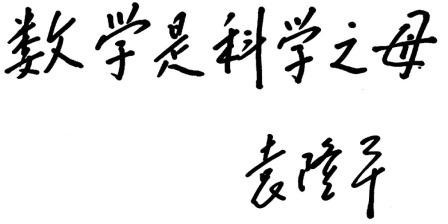 数学是科学之母
袁隆平